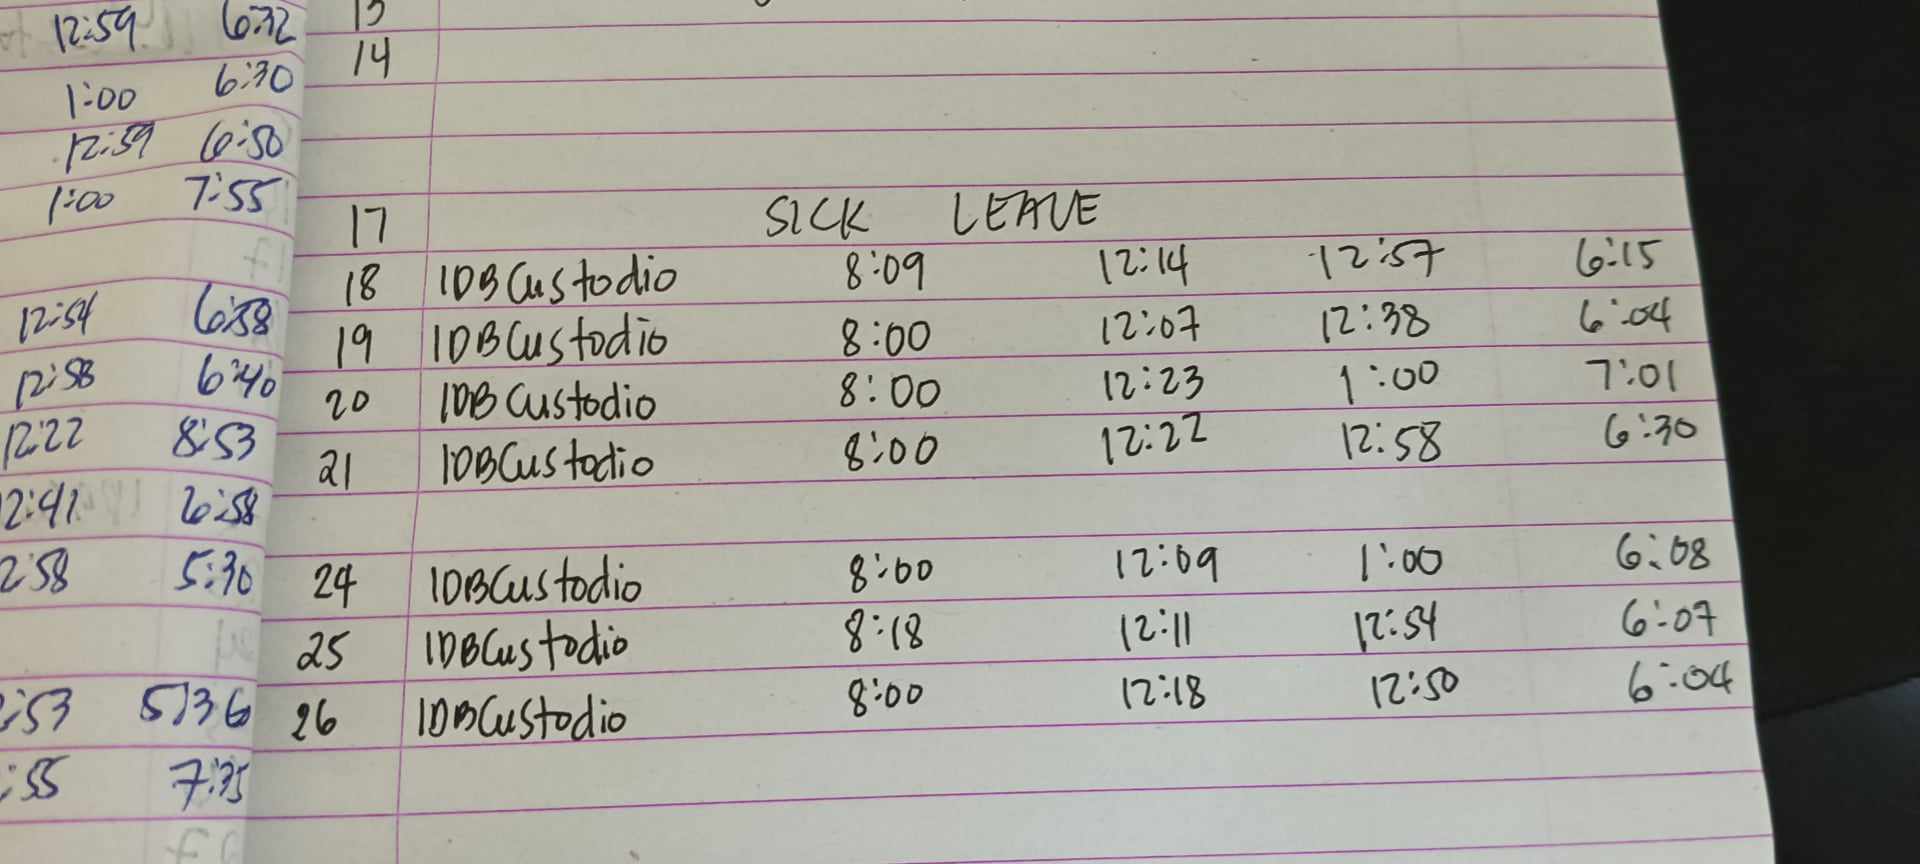 12:59 6:32
1:00 6:30
12:59 6:50
1:00 7:55
12:54 6:58
12:58 6:40
12:22 8:53
2:41 6:58
2:58 5:30
:53 5:36
:55 7:35
13
14
17 SICK LEAVE
18 IDBCustodio 8:09 12:14 12:57 6:15
19 IDBCustodio 8:00 12:07 12:38 6:04
20 IDBCustodio 8:00 12:23 1:00 7:01
21 IDBCustodio 8:00 12:22 12:58 6:30
24 IDBCustodio 8:00 12:09 1:00 6:08
25 IDBCustodio 8:18 12:11 12:54 6:07
26 IDBCustodio 8:00 12:18 12:50 6:04